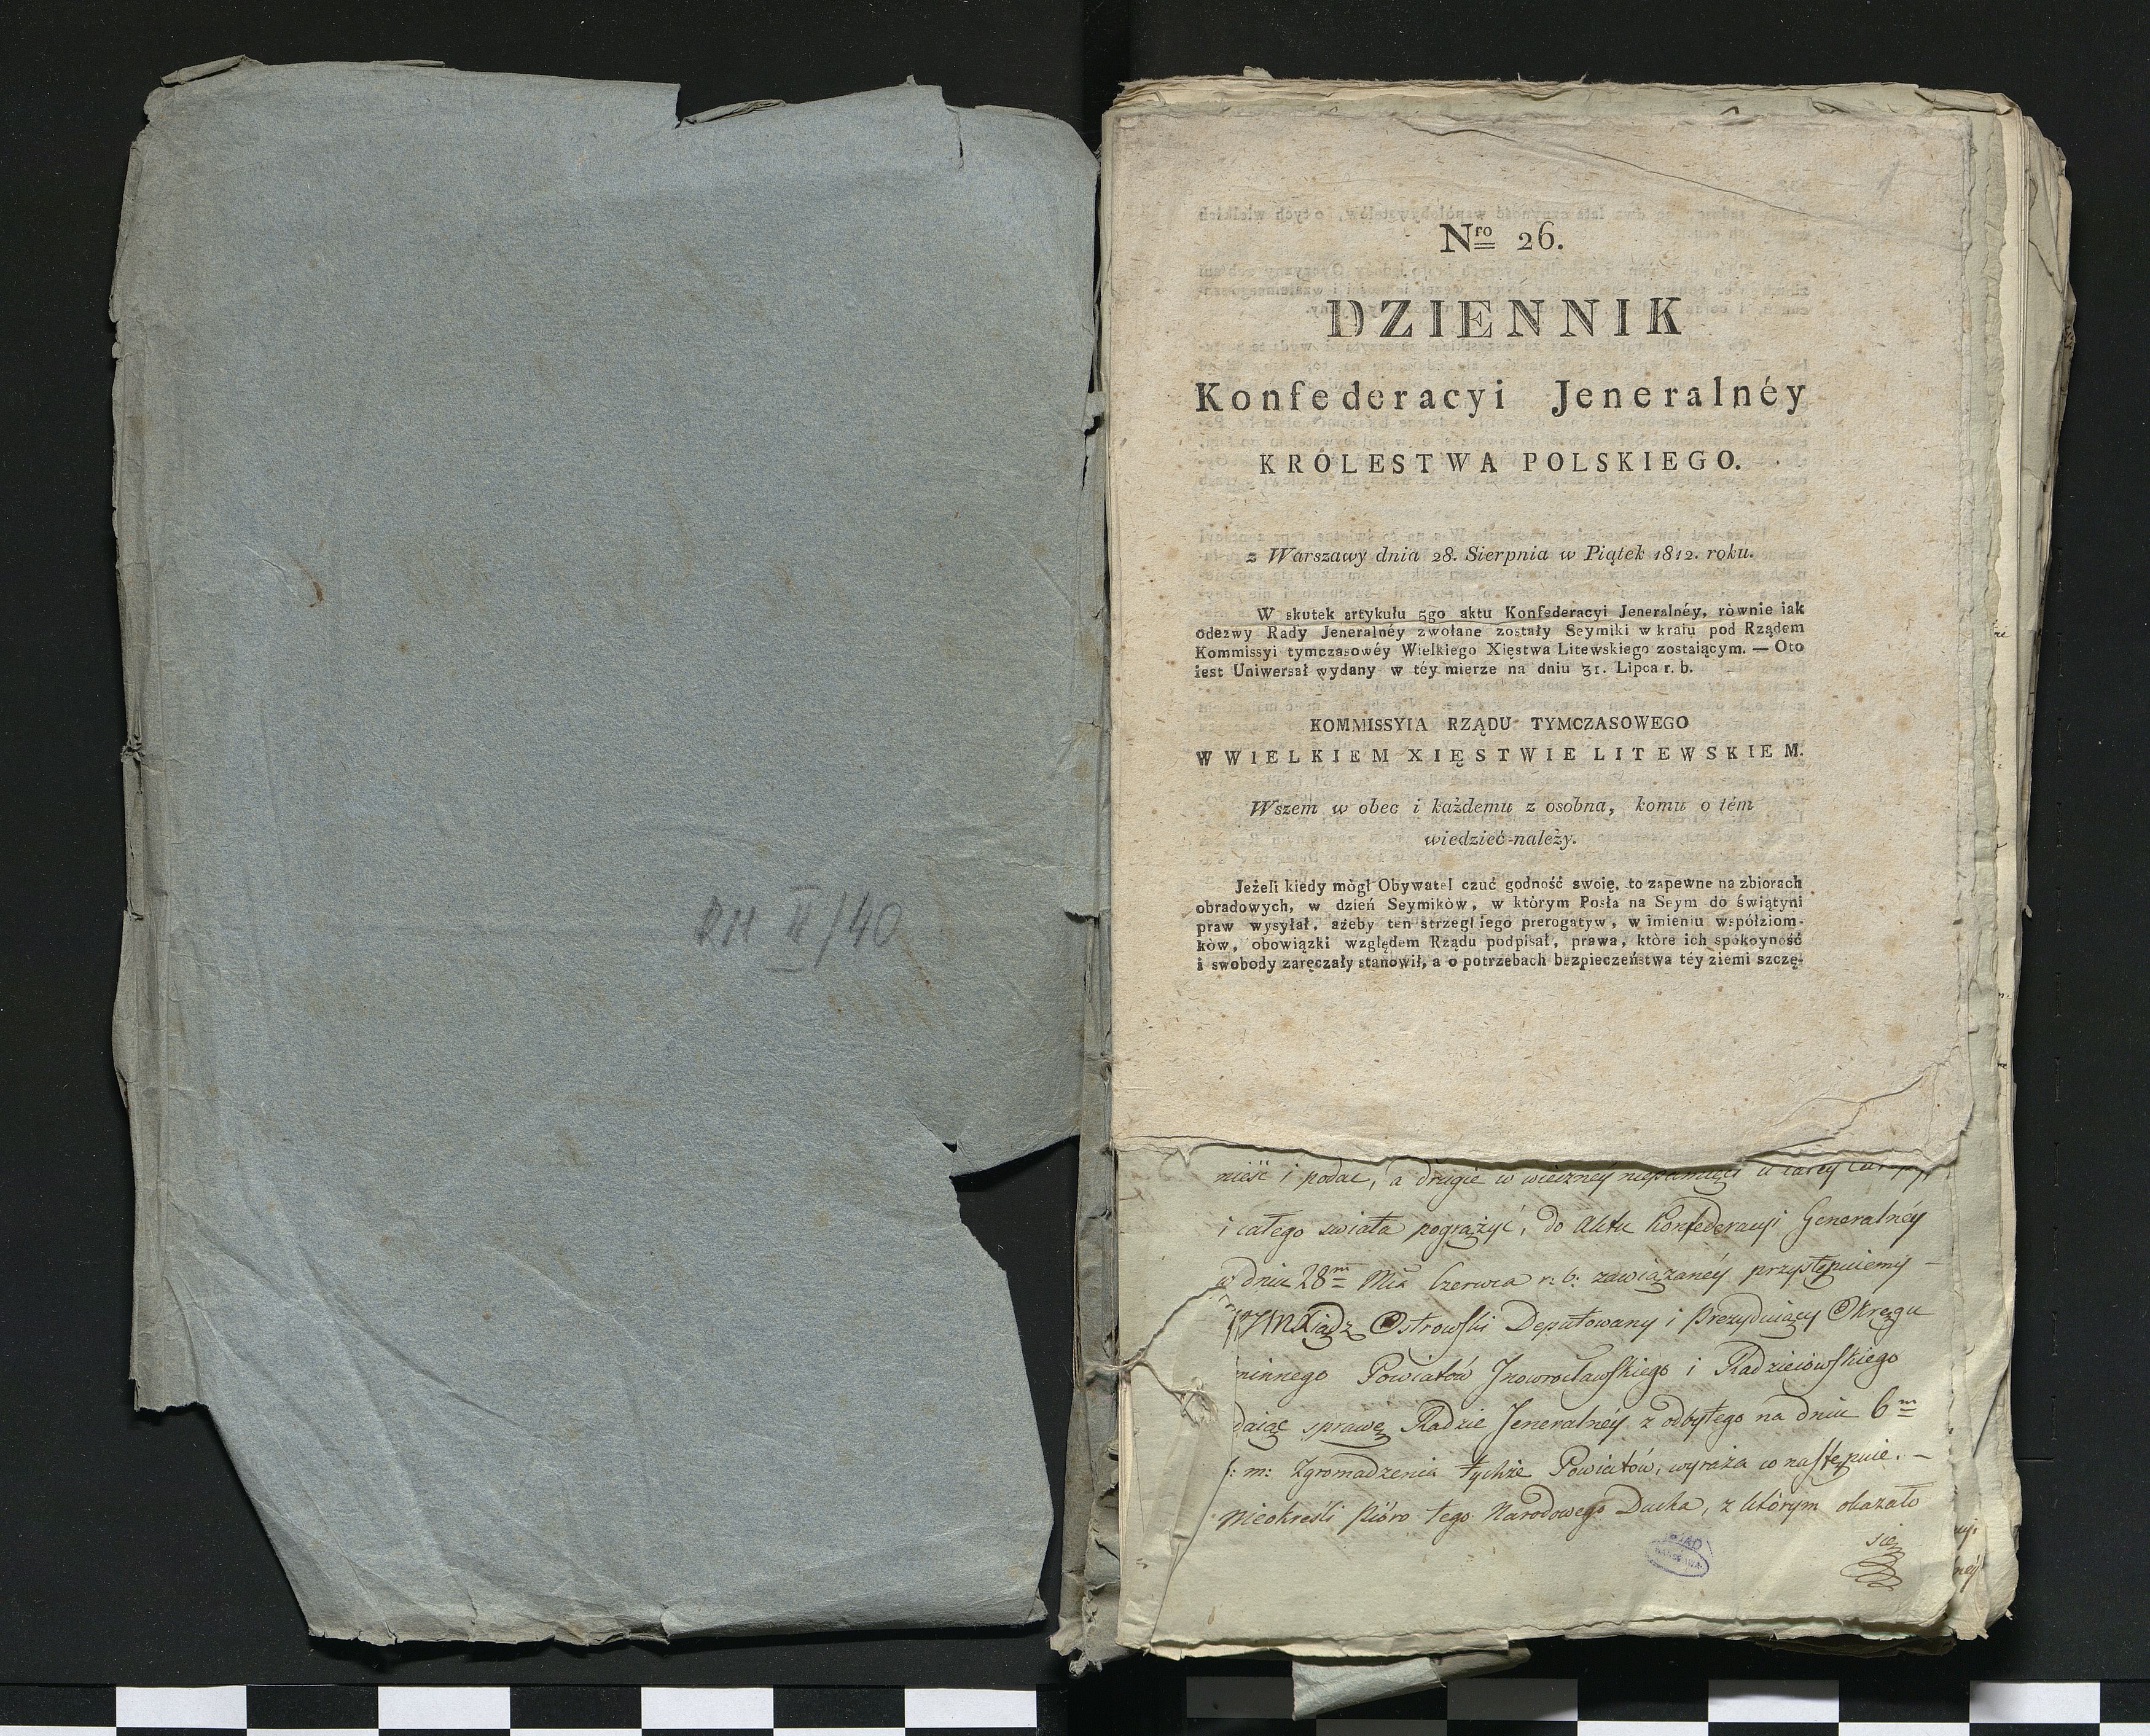 RM II/40
1
Nro 26.
DZIENNIK
Konfederacyi Jeneralnéy
KRÓLESTWA POLSKIEGO.
z Warszawy dnia 28. Sierpnia w Piątek 1812. roku.
W skutek artykułu 5go aktu Konfederacyi Jeneralnéy, równie iak
odezwy Rady Jeneralnéy zwołane zostały Seymiki w kraiu pod Rządem
Kommissyi tymczasowéy Wielkiego Xięstwa Litewskiego zostaiącym. — Oto
iest Uniwersał wydany w téy mierze na dniu 31. Lipca r. b.
KOMMISSYIA RZĄDU TYMCZASOWEGO
W WIELKIEM XIĘSTWIE LITEWSKIEM.
Wszem w obec i każdemu z osobna, komu o tém
wiedzieć należy.
Jeżeli kiedy mógł Obywatel czuć godność swoię, to zapewne na zbiorach
obradowych, w dzień Seymików, w którym Posła na Seym do świątyni
praw wysyłał, ażeby ten strzegł iego prerogatyw, w imieniu współziom-
ków, obowiązki względem Rządu podpisał, prawa, które ich spokoyność
i swobody zaręczały stanowił, a o potrzebach bezpieczeństwa téy ziemi szczę-
nieść i podać, a drugie w wieczney niepamięci u całey
i całego swiata pogrążyć, do Aktu Konfederacyi Generalnéy
w dniu 28m Mca Czerwca r: b: zawiązanéy przystępuiemy —
JMXiądz Ostrowski Deputowany i Prezyduiący Okręgu
minnego Powiatów Jnowrocławskiego i Radzieiowskiego
daiąc sprawę Radzie Jeneralnéy z odbytego na dniu 6m
b: m: Zgromadzenia tychże Powiatów, wyraża co następuie. —
Nieokreśli Pióro tego Narodowego Ducha, z którym okazało
się